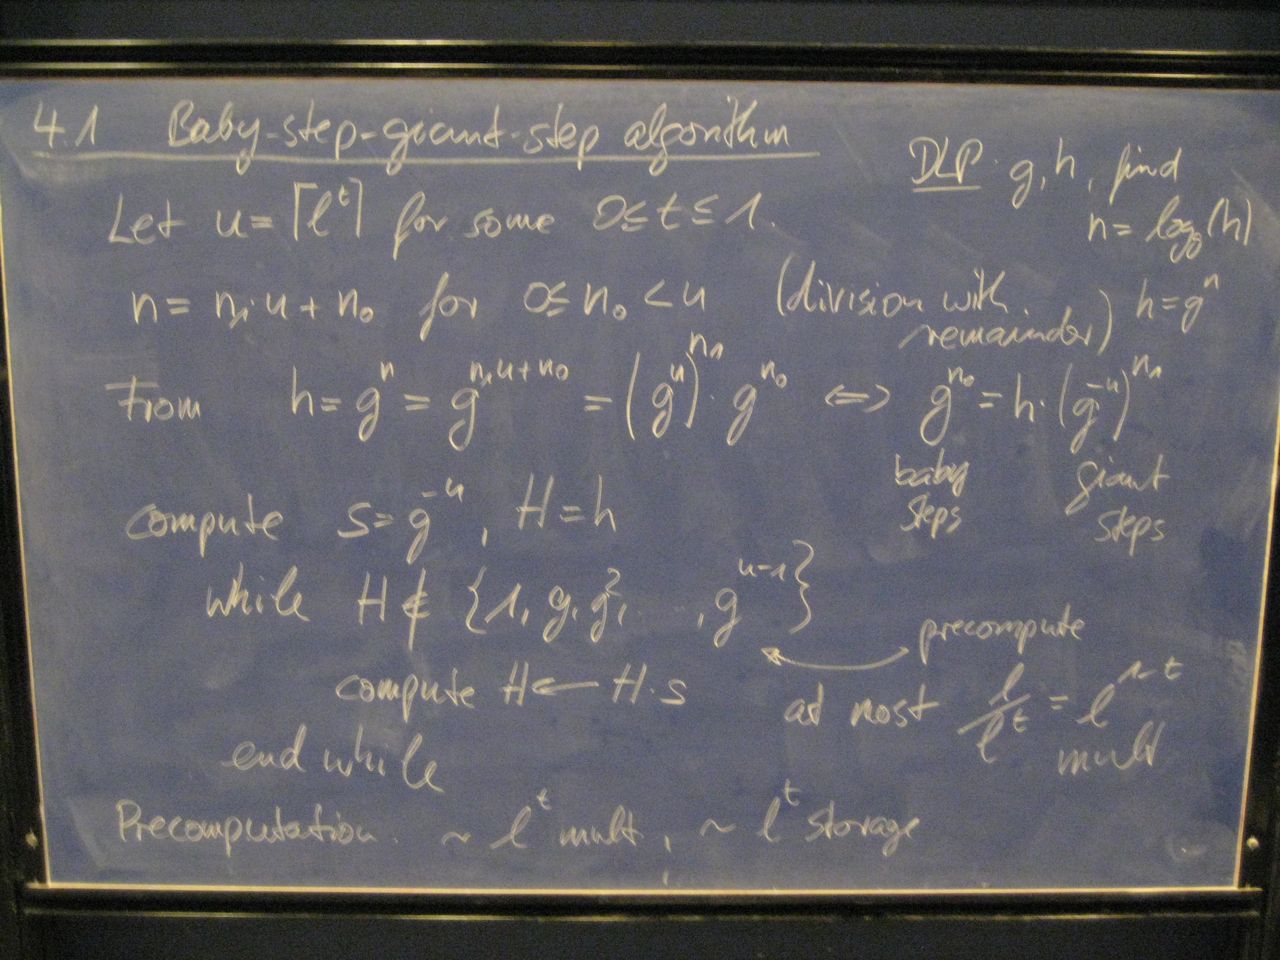 4.1 Baby-step-giant-step algorithm
DLP: g, h, find
n = log_g(h)
Let u = ⌈l^t⌉ for some 0 ≤ t ≤ 1.
n = n₁·u + n₀ for 0 ≤ n₀ < u (division with
remainder)
h = g^n
From h = g^n = g^{n₁u+n₀} = (g^u)^{n₁} · g^{n₀} ⇔ g^{n₀} = h·(g^{-u})^{n₁}
baby
steps
giant
steps
compute s = g^{-u}, H = h
while H ∉ {1, g, g², ..., g^{u-1}}
precompute
compute H ← H·s
at most l/l^t = l^{1-t}
mult
end while
Precomputation. ~ l^t mult, ~ l^t storage